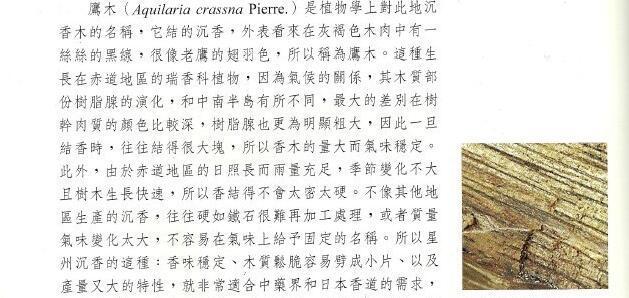 鷹木（Aquilaria crassna Pierre.）是植物學上對此地沉
香木的名稱，它結的沉香，外表看來在灰褐色木肉中有一
絲絲的黑綫，很像老鷹的翅羽色，所以稱為鷹木。這種生
長在赤道地區的瑞香科植物，因為氣侯的關係，其木質部
份樹脂腺的演化，和中南半島有所不同，最大的差別在樹
幹肉質的顏色比較深，樹脂腺也更為明顯粗大，因此一旦
結香時，往往結得很大塊，所以香木的量大而氣味穩定。
此外，由於赤道地區的日照長而雨量充足，季節變化不大
且樹木生長快速，所以香結得不會太密太硬。不像其他地
區生產的沉香，往往硬如鐵石很難再加工處理，或者質量
氣味變化太大，不容易在氣味上給予固定的名稱。所以星
州沉香的這種：香味穩定、木質鬆脆容易劈成小片、以及
產量又大的特性，就非常適合中藥界和日本香道的需求，